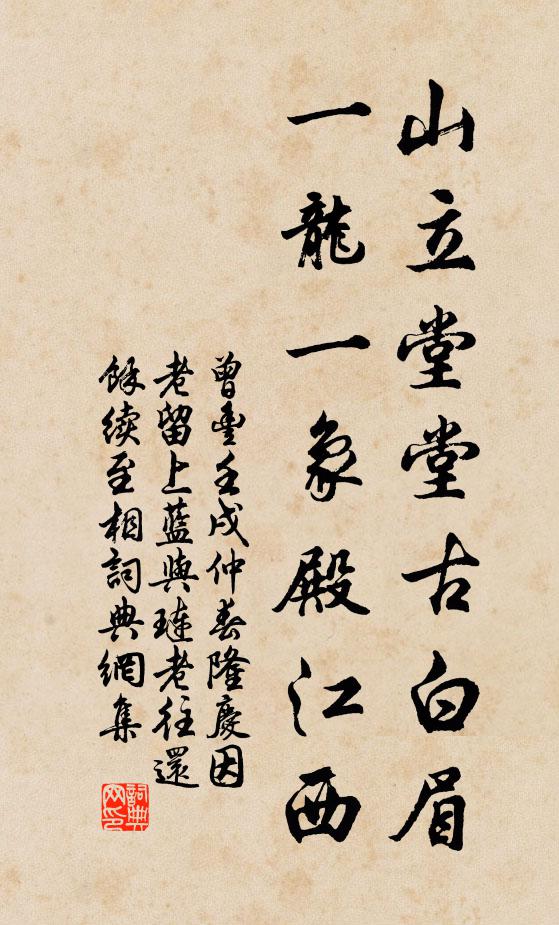 山立堂堂古白眉
一龍一象殿江西
曾豐壬戌仲春隆慶因
老留上藍與璉老往還
餘續至相詞典網集
詞典网印